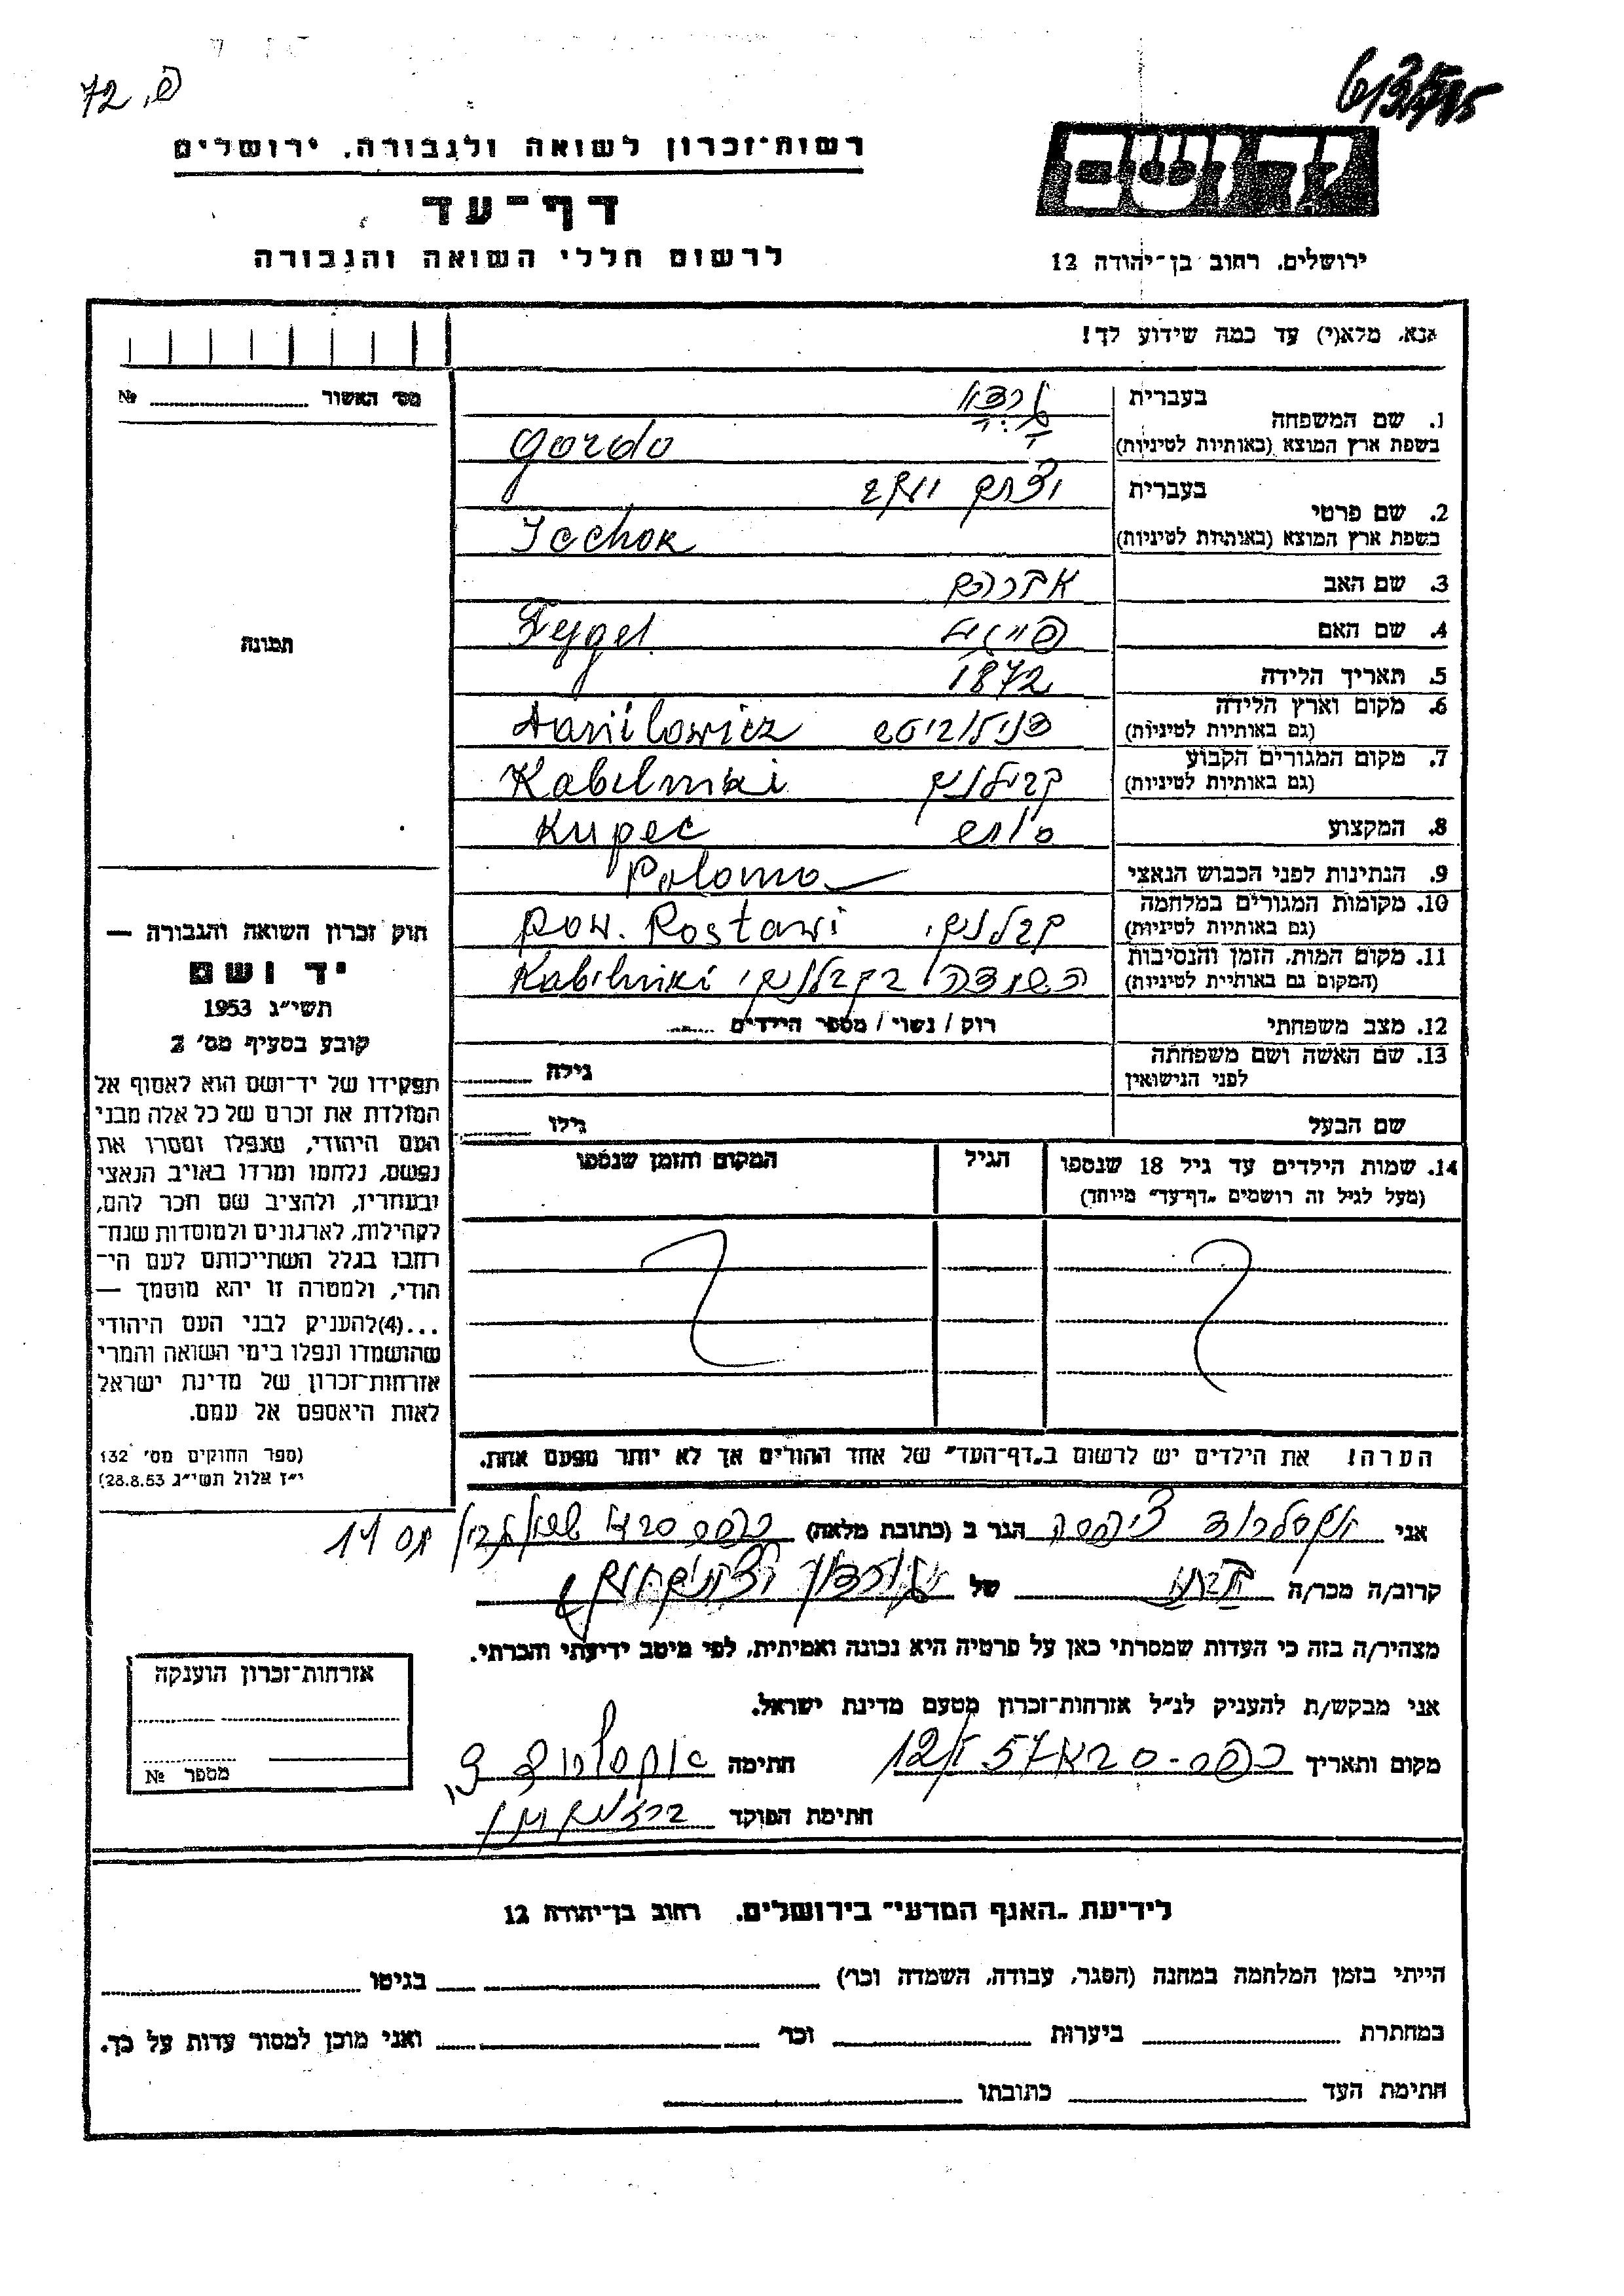 72 .פ
רשות־זכרון לשואה ולגבורה, ירושלים
דף־עד
לרשום חללי השואה והגבורה
ירושלים, רחוב בן־יהודה 12
אנא, מלא(י) עד כמה שידוע לך!
מס׳ האשור № 
1. שם המשפחה
בעברית
בשפת ארץ המוצא (באותיות לטיניות) Gordo
2. שם פרטי
בעברית יצחק
בשפת ארץ המוצא (באותיות לטיניות) Icchok
3. שם האב אברהם
4. שם האם פייגל Fejgel
5. תאריך הלידה 1872
6. מקום וארץ הלידה (גם באותיות לטיניות) דנילוביטש Daniłowicz
7. מקום המגורים הקבוע (גם באותיות לטיניות) קבילניק Kabilniki
8. המקצוע סוחר Kupec
9. הנתינות לפני הכבוש הנאצי
10. מקומות המגורים במלחמה (גם באותיות לטיניות) קבלניקי pow. Postawi
11. מקום המות, הזמן והנסיבות (המקום גם באותיות לטיניות) השמדה בקבלניקי Kabilniki
12. מצב משפחתי רוק / נשוי / מספר הילדים
13. שם האשה ושם משפחתה לפני הנישואין גילה
שם הבעל גילו
14. שמות הילדים עד גיל 18 שנספו
(מעל לגיל זה רושמים „דף־עד" מיוחד)
הגיל
המקום והזמן שנספו
הערה! את הילדים יש לרשום ב„דף־העד" של אחד ההורים אך לא יותר מפעם אחת.
תמונה
חוק זכרון השואה והגבורה —
יד ושם
תשי״ג 1953
קובע בסעיף מס׳ 2
תפקידו של יד־ושם הוא לאסוף אל
המולדת את זכרם של כל אלה מבני
העם היהודי, שנפלו ומסרו את
נפשם, נלחמו ומרדו באויב הנאצי
ובעוזריו, ולהציב שם וזכר להם,
לקהילות, לארגונים ולמוסדות שנח־
רבו בגלל השתייכותם לעם הי־
הודי, ולמטרה זו יהא מוסמך —
...(4) להעניק לבני העם היהודי
שהושמדו ונפלו בימי השואה והמרי
אזרחות־זכרון של מדינת ישראל
לאות היאספם אל עמם.
(ספר החוקים מס׳ 132
י״ז אלול תשי״ג 28.8.53)
אני אקסלרוד הגר ב (כתובת מלאה) כפר סבא
קרוב/ה מכר/ה של
מצהיר/ה בזה כי העדות שמסרתי כאן על פרטיה היא נכונה ואמיתית, לפי מיטב ידיעתי והכרתי.
אני מבקש/ת להעניק לנ״ל אזרחות־זכרון מטעם מדינת ישראל.
מקום ותאריך כפר-סבא חתימה אקסלרוד צ.
חתימת הפוקד
אזרחות־זכרון הוענקה
מספר №
לידיעת „האגף המדעי" בירושלים, רחוב בן־יהודה 12
הייתי בזמן המלחמה במחנה (הסגר, עבודה, השמדה וכו׳) בגיטו
במחתרת ביערות וכו׳ ואני מוכן למסור עדות על כך.
חתימת העד כתובתו